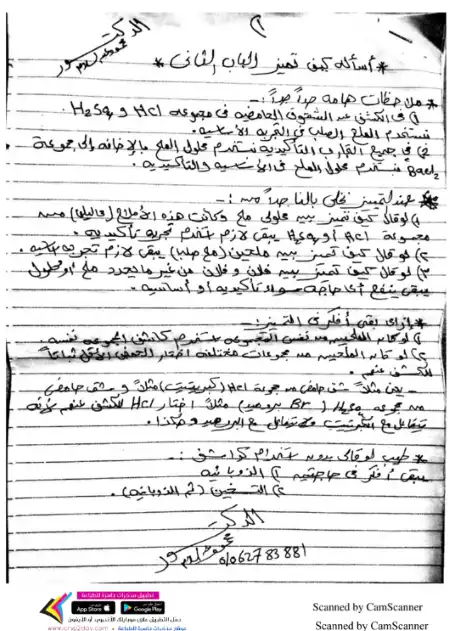 ٢
الدكتور
* أسئلة كيف تميز الباب الثانى *
* ملاحظات هامة جداً جداً :-
١) فى الكشف عن الشقوق الحامضية فى مجموعة HCl و H₂SO₄
نستخدم الملح الصلب فى التجربة الأساسية.
٢) فى جميع التجارب التأكيدية نستخدم محلول الملح بالإضافة إلى مجموعة
BaCl₂ نستخدم محلول الملح فى الأساسية والتأكيدية.
* عند التمييز نخلى بالنا جداً من :-
١) لو قال كيف تميز بين محلولى ملح وكانت هذه الأملاح (محاليل) من
مجموعة HCl أو H₂SO₄ يبقى لازم نستخدم تجربة تأكيدية.
٢) لو قال كيف تميز بين ملحين (ملح صلب) يبقى لازم تجربة أساسية.
٣) لو قال كيف تميز بين فلان و فلان من غير ما يحدد ملح أو محلول
يبقى ينفع أى حاجة سواء تأكيدية أو أساسية.
* إزاى بقى أفكر فى التميز :-
١) لو كان الملحين من نفس المجموعة نستخدم كاشف المجموعة نفسه.
٢) لو كان الملحين من مجموعات مختلفة اختار الحمض الأقل ثباتاً
للكشف عنهم.
- يعنى مثلاً شق حامضى من مجموعة HCl (كبريتيت) مثلاً و شق حامضى
من مجموعة H₂SO₄ (Br⁻ بروميد) مثلاً اختار HCl للكشف عنهم لأنه
يتفاعل مع الكبريتيت ولا يتفاعل مع البروميد وهكذا.
* طيب لو قالى بدون استخدام كواشف :-
يبقى أفكر فى حاجتين ١) الذوبانية
٢) التسخين (ثم الذوبانية).
الدكتور
01062783881
تطبيق مذكرات جاهزة للطباعة
App Store
Google Play
حمل التطبيق على موبايلك الأندرويد أو الآيفون
موقع مذكرات جاهزة للطباعة • www.cnq2day.com
Scanned by CamScanner
Scanned by CamScanner